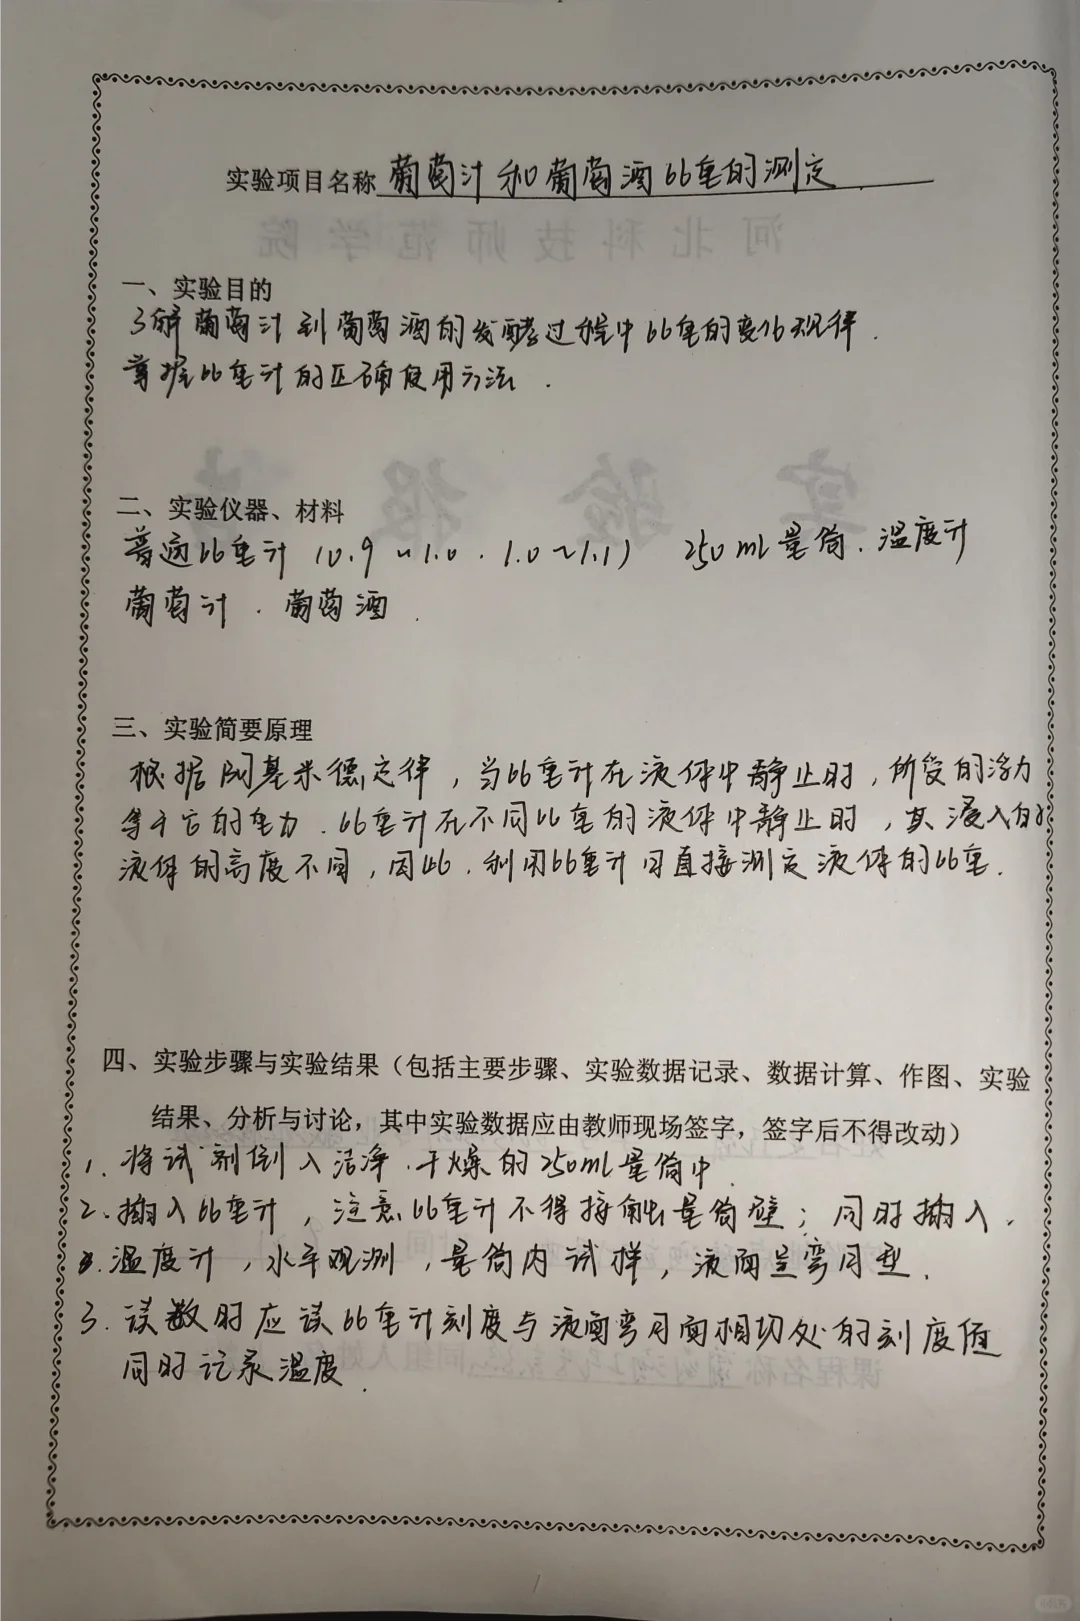 实验项目名称 葡萄汁和葡萄酒比重的测定.
河北科技师范学院
一、实验目的
了解葡萄汁到葡萄酒的发酵过程中比重的变化规律.
掌握比重计的正确使用方法.
实验报告
二、实验仪器、材料
普通比重计 (0.9~1.0. 1.0~1.1) 250ml量筒. 温度计
葡萄汁. 葡萄酒.
三、实验简要原理
根据阿基米德定律,当比重计在液体中静止时,所受的浮力
等于它的重力.比重计在不同比重的液体中静止时,其浸入的
液体的高度不同,因此.利用比重计可直接测定液体的比重.
四、实验步骤与实验结果(包括主要步骤、实验数据记录、数据计算、作图、实验
结果、分析与讨论,其中实验数据应由教师现场签字,签字后不得改动)
1. 将试剂倒入洁净.干燥的250ml量筒中
2. 插入比重计,注意比重计不得接触量筒壁;同时插入.
温度计,水平观测,量筒内试样,液面呈弯月型.
3. 读数时应读比重计刻度与液面弯月面相切处的刻度值
同时记录温度.
课程名称